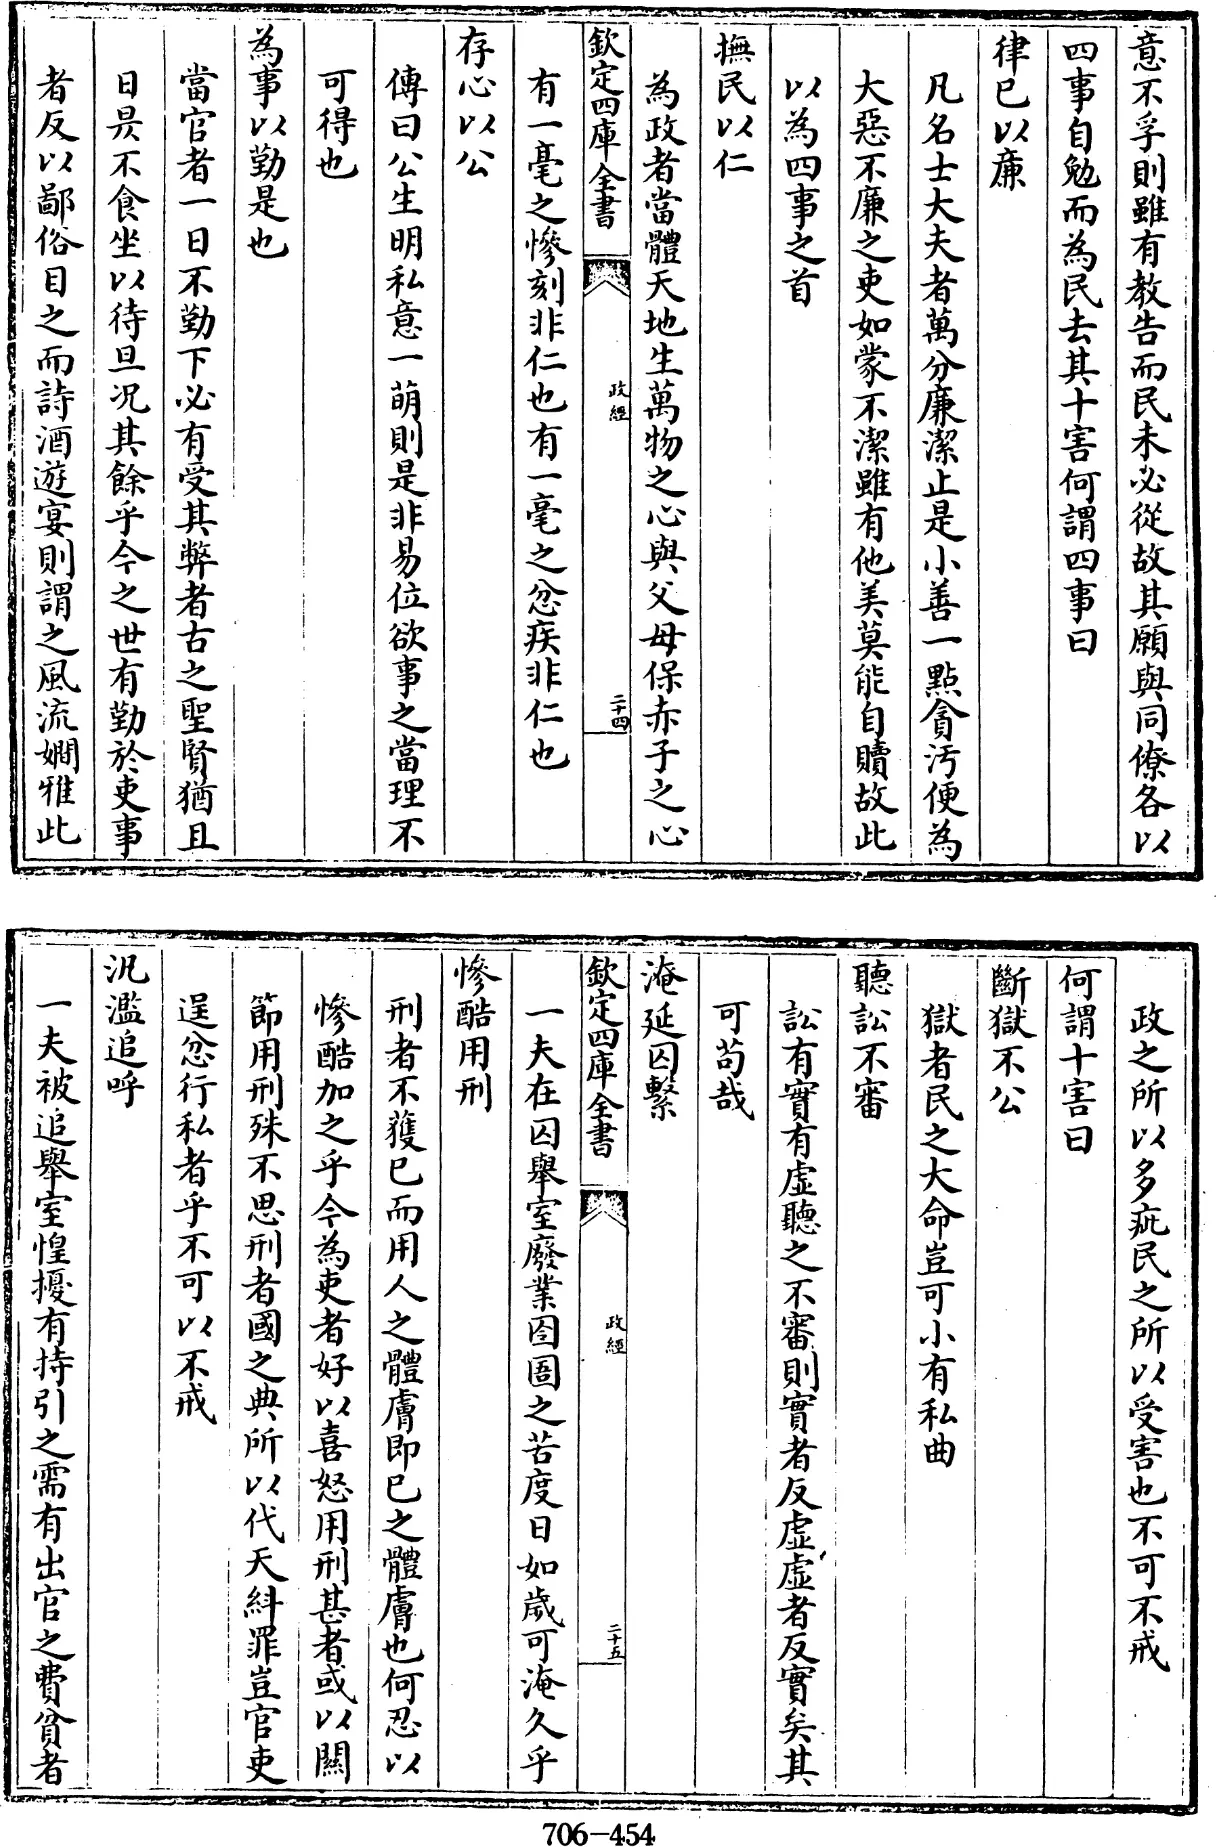 意不孚則雖有教告而民未必從故其願與同僚各以
四事自勉而為民去其十害何謂四事曰
律已以廉
凡名士大夫者萬分廉潔止是小善一點貪汚便為
大惡不廉之吏如蒙不潔雖有他美莫能自贖故此
以為四事之首
撫民以仁
為政者當體天地生萬物之心與父母保赤子之心
欽定四庫全書
政經
二十四
有一毫之慘刻非仁也有一毫之忿疾非仁也
存心以公
傳曰公生明私意一萌則是非易位欲事之當理不
可得也
為事以勤是也
當官者一日不勤下必有受其弊者古之聖賢猶且
日昃不食坐以待旦况其餘乎今之世有勤於吏事
者反以鄙俗目之而詩酒遊宴則謂之風流嫺雅此
政之所以多疵民之所以受害也不可不戒
何謂十害曰
斷獄不公
獄者民之大命豈可小有私曲
聽訟不審
訟有實有虛聽之不審則實者反虛虛者反實矣其
可苟哉
淹延囚繫
欽定四庫全書
政經
二十五
一夫在囚舉室廢業囹圄之苦度日如歲可淹久乎
慘酷用刑
刑者不獲已而用人之體膚即已之體膚也何忍以
慘酷加之乎今為吏者好以喜怒用刑甚者或以關
節用刑殊不思刑者國之典所以代天糾罪豈官吏
逞忿行私者乎不可以不戒
汎濫追呼
一夫被追舉室惶擾有持引之需有出官之費貧者
706-454